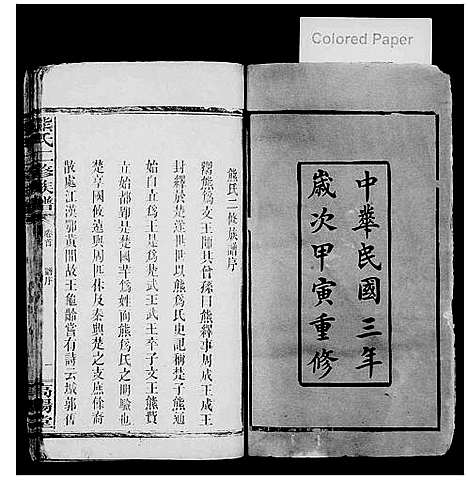 Colored Paper
中華民國三年
歲次甲寅重修
熊氏二修族譜序
鬻熊爲文王師其曾孫曰熊繹事周成王成王
封繹於楚運世以熊爲氏史記稱楚子熊通
始自立爲王是武王武王卒子文王熊貲
立始都郢是楚國芈爲姓而熊爲氏之明驗也
楚享國攸遠與周匹休及秦興楚之支庶俗裔
散處江漢鄂黃間故王龜齡嘗有詩云域郭舊
熊氏二修族譜
卷首
譜序
一
高陽堂